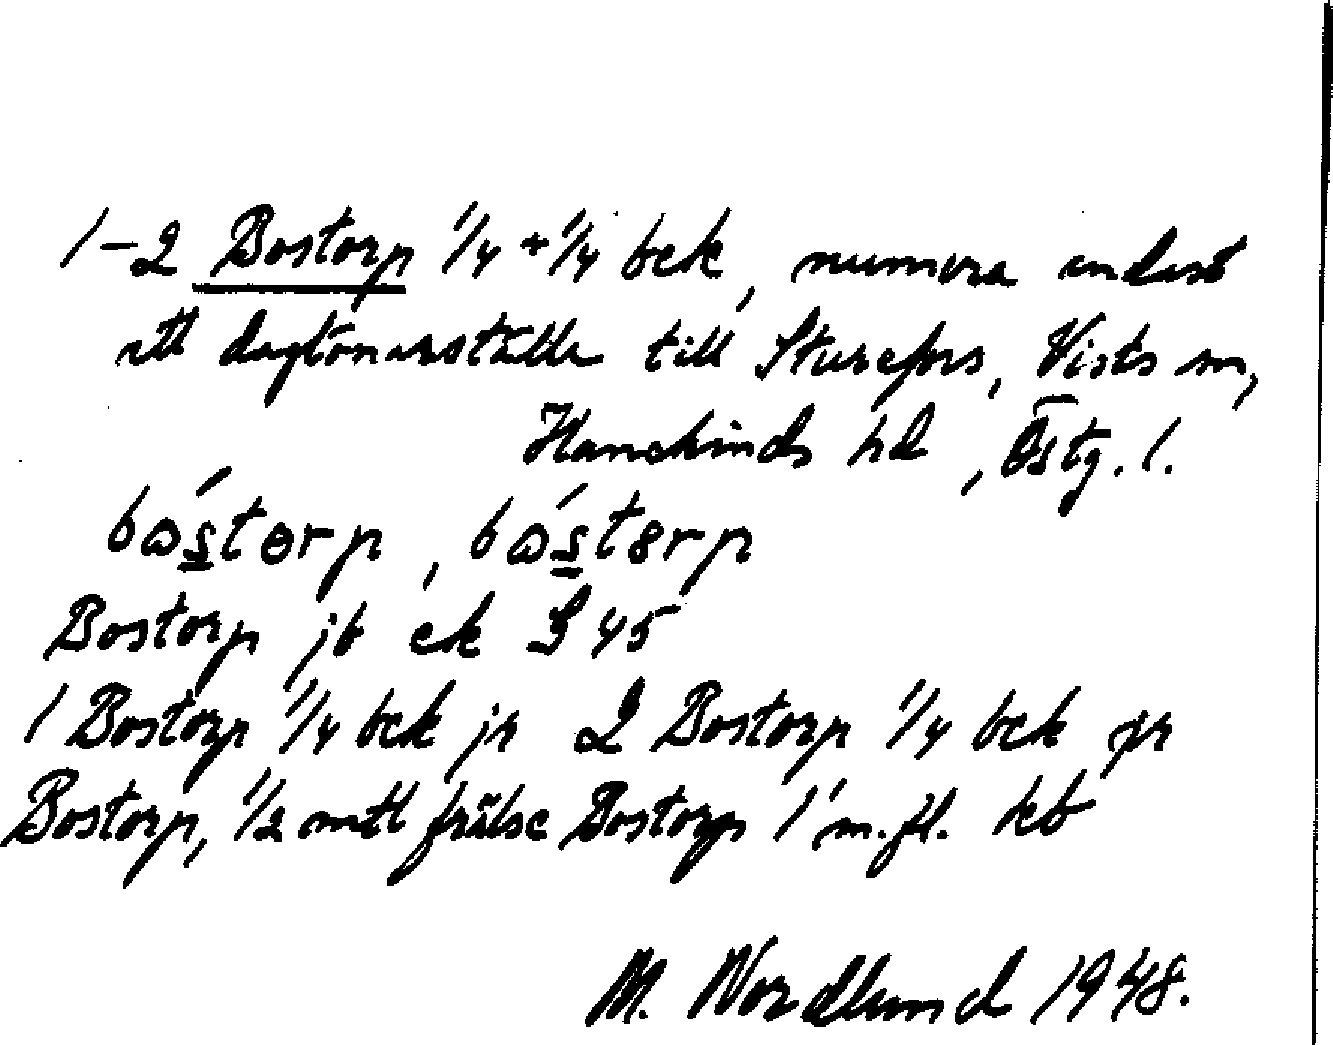 1-2 Bostorp 1/4 + 1/4 bek, numera endast
ett daglönarställe till Sturefors, Vists sn,
Hanekinds hd, Östg. l.
bo̕stɵrp, bo̕st8rp
Bostorp jb ek S 45
1 Bostorp 1/4 bek jr 2 Bostorp 1/4 bek jr
Bostorp, 1/2 mtl frälse Bostorp 1 m.fl. kb
M. Nordlund 1948.